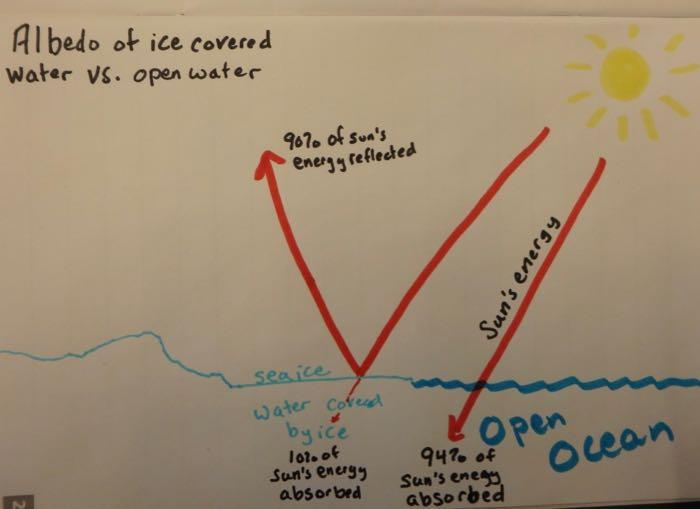 Albedo of ice covered
water vs. open water
90% of sun's
energy reflected
Sun's energy
sea ice
water covered
by ice
10% of
Sun's energy
absorbed
94% of
Sun's enegy
absorbed
Open
Ocean
2